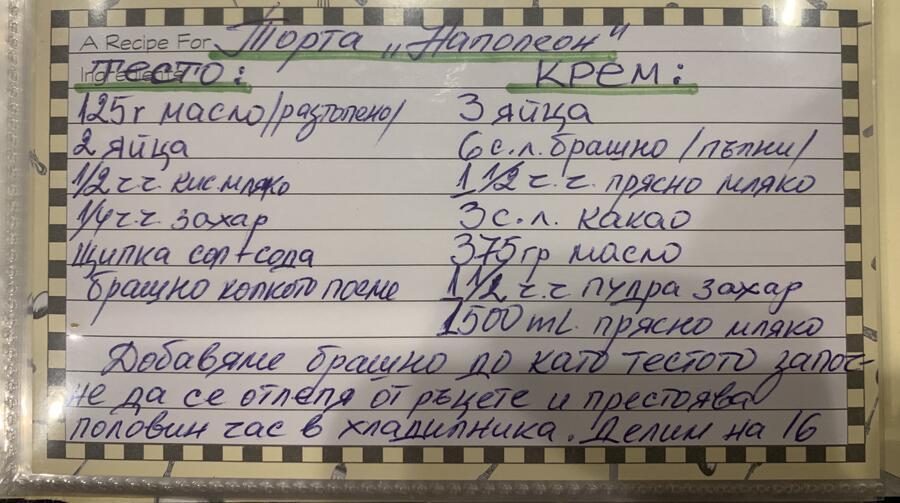 A Recipe For Торта "Наполеон"
Тесто:
125г масло /разтопено/
2 яйца
1/2 ч.ч. кис.мляко
1/4 ч.ч. захар
щипка сол + сода
брашно колкото поеме
Крем:
3 яйца
6 с.л. брашно /пълни/
1 1/2 ч.ч. прясно мляко
3 с.л. какао
375 гр масло
1 1/2 ч.ч пудра захар
1500 ml. прясно мляко
Добавяме брашно до като тестото започ-
не да се отлепя от ръцете и престоява
половин час в хладилника. Делим на 16